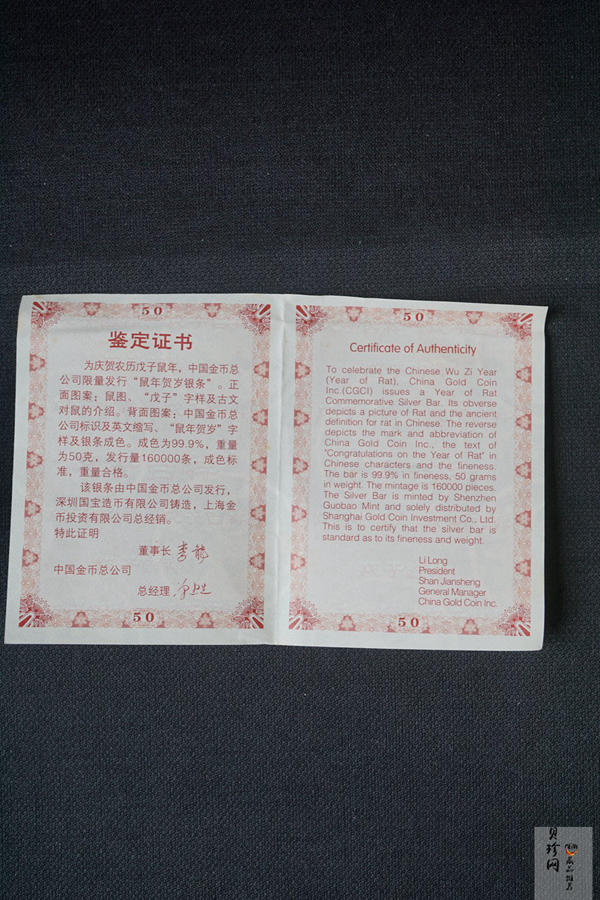 50
鉴定证书
为庆贺农历戊子鼠年，中国金币总
公司限量发行“鼠年贺岁银条”。正
面图案：鼠图、“戊子”字样及古文
对鼠的介绍。背面图案：中国金币总
公司标识及英文缩写、“鼠年贺岁”字
样及银条成色。成色为99.9%，重量
为50克，发行量160000条，成色标
准，重量合格。
该银条由中国金币总公司发行，
深圳国宝造币有限公司铸造，上海金
币投资有限公司总经销。
特此证明
董事长 李龙
中国金币总公司
总经理
50
50
Certificate of Authenticity
To celebrate the Chinese Wu Zi Year
(Year of Rat), China Gold Coin
Inc.(CGCI) issues a Year of Rat
Commemorative Silver Bar. Its obverse
depicts a picture of Rat and the ancient
definition for rat in Chinese. The reverse
depicts the mark and abbreviation of
China Gold Coin Inc., the text of
"Congratulations on the Year of Rat" in
Chinese characters and the fineness.
The bar is 99.9% in fineness, 50 grams
in weight. The mintage is 160000 pieces.
The Silver Bar is minted by Shenzhen
Guobao Mint and solely distributed by
Shanghai Gold Coin Investment Co., Ltd.
This is to certify that the silver bar is
standard as to its fineness and weight.
Li Long
President
Shan Jiansheng
General Manager
China Gold Coin Inc.
50
贝珍网